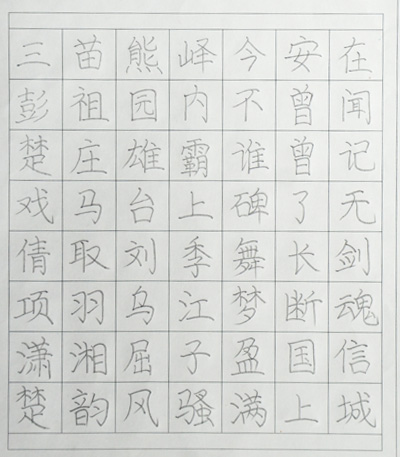 三苗熊峄今安在
彭祖园内不曾闻
楚庄雄霸谁曾记
戏马台上碑了无
倩取刘季舞长剑
项羽乌江梦断魂
潇湘屈子盈国信
楚韵风骚满上城